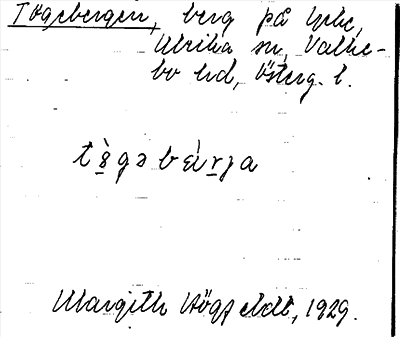 Tögebergen, berg på Lybe,
Ulrika sn, Valke-
bo hd, Österg. l.
tö̀gəbærja
Margith Högfeldt, 1929.